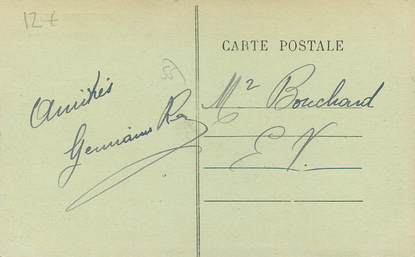 12€
55
Amitiés
Germaine
CARTE POSTALE
Mr Bouchard
E. V.